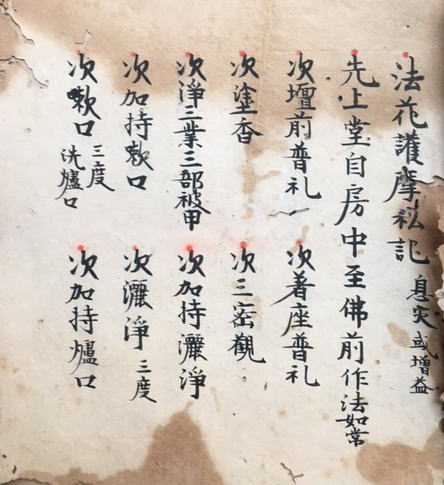 法花護摩私記 息災或增益
先上堂自房中至佛前作法如常
次壇前普礼 次著座普礼
次塗香 次三密觀
次淨三業三部被甲 次加持灑淨
次加持嗽口 次灑淨 三度
次嗽口 三度 洗爐口 次加持爐口